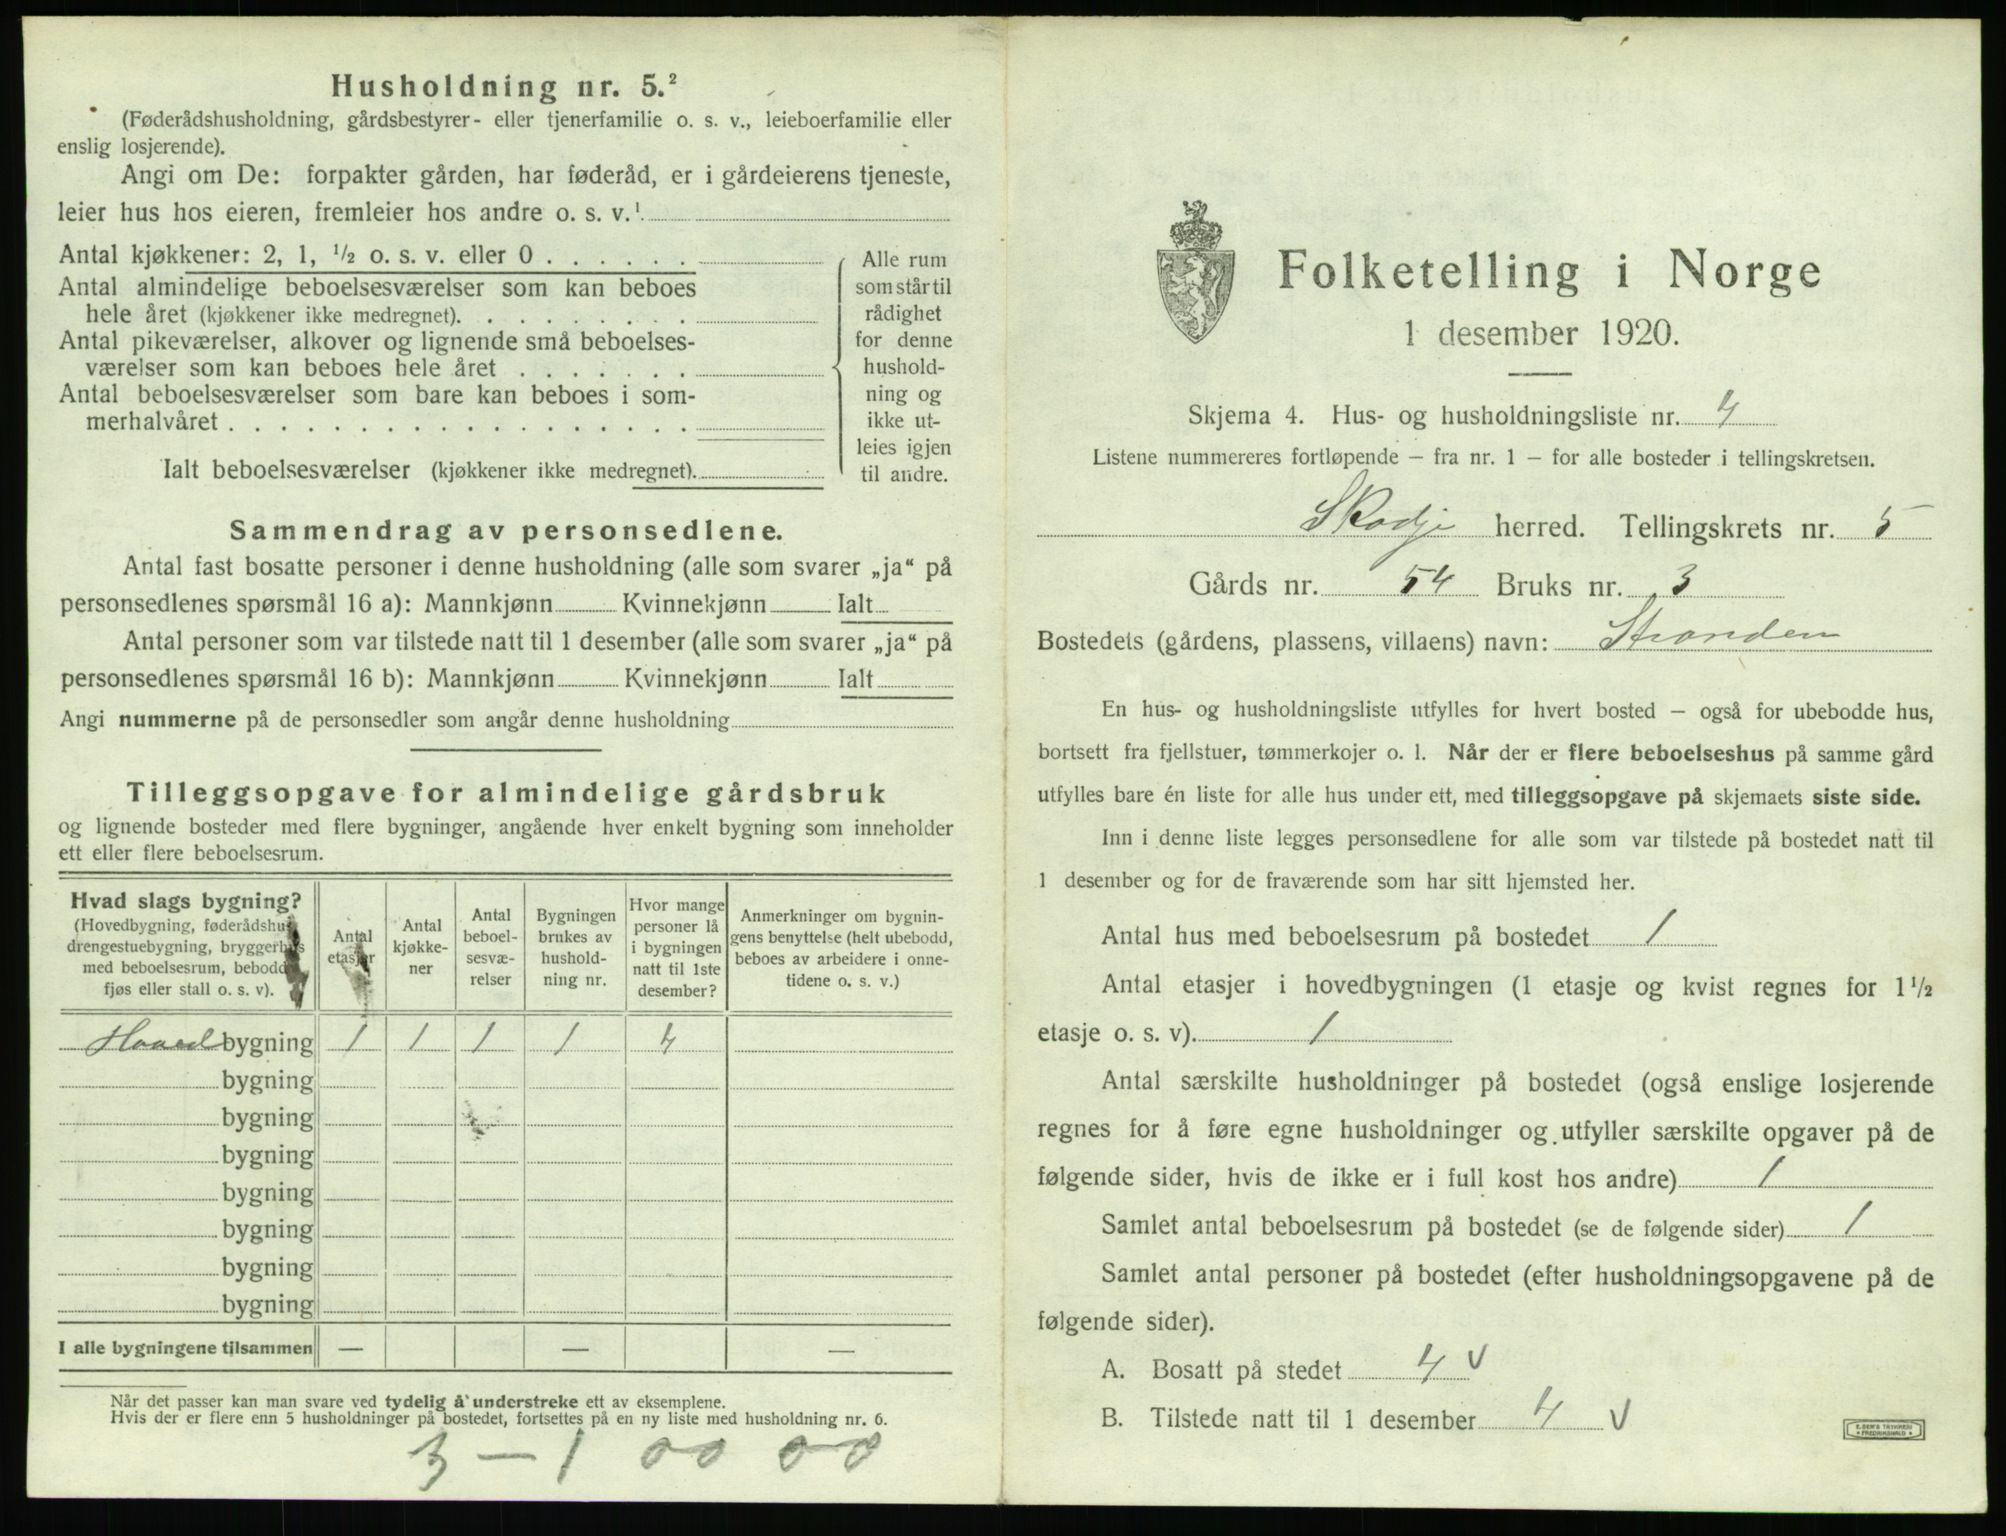 Husholdning nr. 5.²
(Føderådshusholdning, gårdsbestyrer- eller tjenerfamilie o. s. v., leieboerfamilie eller
enslig losjerende).
Angi om De: forpakter gården, har føderåd, er i gårdeierens tjeneste,
leier hus hos eieren, fremleier hos andre o. s. v.¹
Antal kjøkkener: 2, 1, ½ o. s. v. eller 0 . . . . . .
Antal almindelige beboelsesværelser som kan beboes
hele året (kjøkkener ikke medregnet). . . . . . . . .
Antal pikeværelser, alkover og lignende små beboelses-
værelser som kan beboes hele året . . . . . . .
Antal beboelsesværelser som bare kan beboes i som-
merhalvåret . . . . . . . . . . . . . . . . . .
Ialt beboelsesværelser (kjøkkener ikke medregnet).
Alle rum
som står til
rådighet
for denne
hushold-
ning og
ikke ut-
leies igjen
til andre.
Sammendrag av personsedlene.
Antal fast bosatte personer i denne husholdning (alle som svarer „ja“ på
personsedlenes spørsmål 16 a): Mannkjønn Kvinnekjønn Ialt
Antal personer som var tilstede natt til 1 desember (alle som svarer „ja“ på
personsedlenes spørsmål 16 b): Mannkjønn Kvinnekjønn Ialt
Angi nummerne på de personsedler som angår denne husholdning
Tilleggsopgave for almindelige gårdsbruk
og lignende bosteder med flere bygninger, angående hver enkelt bygning som inneholder
ett eller flere beboelsesrum.
Hvad slags bygning?
(Hovedbygning, føderådshus,
drengestuebygning, bryggerhus
med beboelsesrum, bebodd
fjøs eller stall o. s. v).
Antal
etasjer
Antal
kjøkke-
ner
Antal
beboel-
sesvæ-
relser
Bygningen
brukes av
hushold-
ning nr.
Hvor mange
personer lå
i bygningen
natt til 1ste
desember?
Anmerkninger om bygnin-
gens benyttelse (helt ubebodd,
beboes av arbeidere i onne-
tidene o. s. v.)
Hovedbygning 1 1 1 1 4
bygning
bygning
bygning
bygning
bygning
bygning
bygning
I alle bygningene tilsammen — — —
Når det passer kan man svare ved tydelig å understreke ett av eksemplene.
Hvis der er flere enn 5 husholdninger på bostedet, fortsettes på en ny liste med husholdning nr. 6.
3 — 1 00 00
Folketelling i Norge
1 desember 1920.
Skjema 4. Hus- og husholdningsliste nr. 4
Listene nummereres fortløpende — fra nr. 1 — for alle bosteder i tellingskretsen.
Skodje herred. Tellingskrets nr. 5
Gårds nr. 54 Bruks nr. 3
Bostedets (gårdens, plassens, villaens) navn: Stranden
En hus- og husholdningsliste utfylles for hvert bosted — også for ubebodde hus,
bortsett fra fjellstuer, tømmerkojer o. l. Når der er flere beboelseshus på samme gård
utfylles bare én liste for alle hus under ett, med tilleggsopgave på skjemaets siste side.
Inn i denne liste legges personsedlene for alle som var tilstede på bostedet natt til
1 desember og for de fraværende som har sitt hjemsted her.
Antal hus med beboelsesrum på bostedet 1
Antal etasjer i hovedbygningen (1 etasje og kvist regnes for 1½
etasje o. s. v). 1
Antal særskilte husholdninger på bostedet (også enslige losjerende
regnes for å føre egne husholdninger og utfyller særskilte opgaver på de
følgende sider, hvis de ikke er i full kost hos andre) 1
Samlet antal beboelsesrum på bostedet (se de følgende sider) 1
Samlet antal personer på bostedet (efter husholdningsopgavene på de
følgende sider).
A. Bosatt på stedet 4 v
B. Tilstede natt til 1 desember 4 v